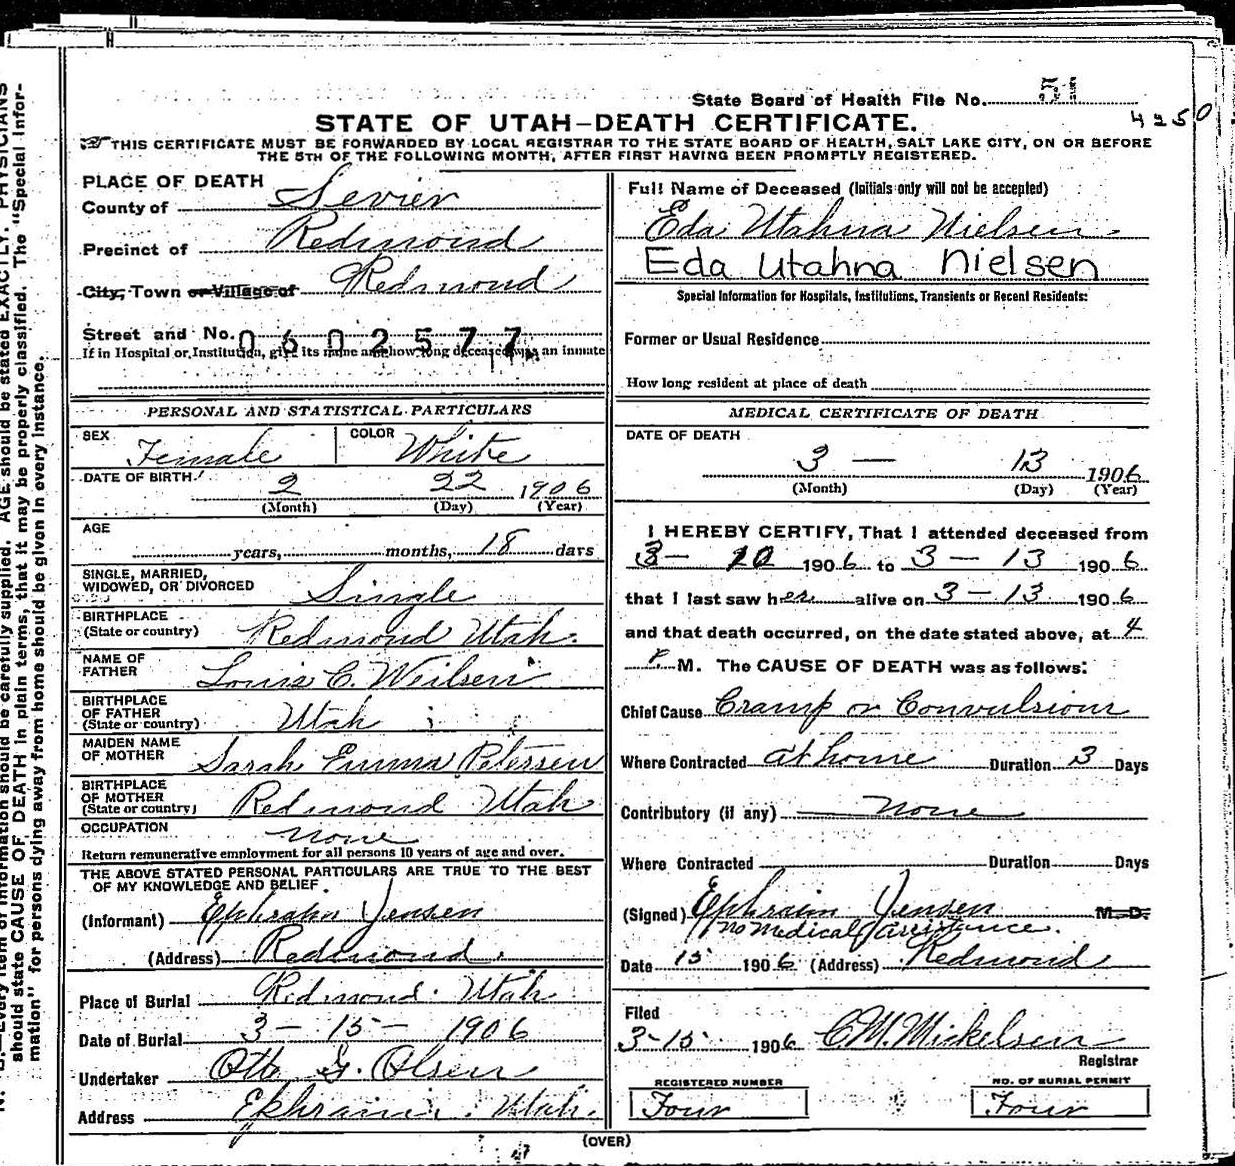 State Board of Health File No. 51
4250
STATE OF UTAH–DEATH CERTIFICATE.
THIS CERTIFICATE MUST BE FORWARDED BY LOCAL REGISTRAR TO THE STATE BOARD OF HEALTH, SALT LAKE CITY, ON OR BEFORE
THE 5TH OF THE FOLLOWING MONTH, AFTER FIRST HAVING BEEN PROMPTLY REGISTERED.
PLACE OF DEATH
County of Sevier
Precinct of Redmond
City, Town or Village of Redmond
Street and No. 0602577
If in Hospital or Institution, give its name and how long deceased was an inmate
PERSONAL AND STATISTICAL PARTICULARS
SEX Female COLOR White
DATE OF BIRTH 2 22 1906
(Month) (Day) (Year)
AGE
years, months, 18 days
SINGLE, MARRIED,
WIDOWED, OR DIVORCED Single
BIRTHPLACE
(State or country) Redmond Utah.
NAME OF
FATHER Louis C. Neilsen
BIRTHPLACE
OF FATHER
(State or country) Utah
MAIDEN NAME
OF MOTHER Sarah Emma Petersen
BIRTHPLACE
OF MOTHER
(State or country) Redmond Utah
OCCUPATION none
Return remunerative employment for all persons 10 years of age and over.
THE ABOVE STATED PERSONAL PARTICULARS ARE TRUE TO THE BEST
OF MY KNOWLEDGE AND BELIEF.
(Informant) Ephraim Jensen
(Address) Redmond.
Place of Burial Redmond. Utah
Date of Burial 3 – 15 – 1906
Undertaker Otto G. Olsen
Address Ephraim. Utah.
Full Name of Deceased (Initials only will not be accepted)
Eda Utahna Nielsen
Eda Utahna Nielsen
Special Information for Hospitals, Institutions, Transients or Recent Residents:
Former or Usual Residence
How long resident at place of death
MEDICAL CERTIFICATE OF DEATH
DATE OF DEATH
3 – 13 1906
(Month) (Day) (Year)
I HEREBY CERTIFY, That I attended deceased from
3 – 10 1906 to 3 – 13 1906
that I last saw her alive on 3 – 13 1906
and that death occurred, on the date stated above, at 4
P. M. The CAUSE OF DEATH was as follows:
Chief Cause Cramp or Convulsions
Where Contracted at home Duration 3 Days
Contributory (if any) none
Where Contracted Duration Days
(Signed) Ephraim Jensen M.D.
no Medical assistance.
Date 15 1906 (Address) Redmond
Filed
3-15 1906 C.M. Mickelsen
Registrar
REGISTERED NUMBER
Four
NO. OF BURIAL PERMIT
Four
(OVER)
should be carefully supplied. AGE should be stated EXACTLY. PHYSICIANS
should state CAUSE OF DEATH in plain terms, that it may be properly classified. The "Special Infor-
mation" for persons dying away from home should be given in every instance.